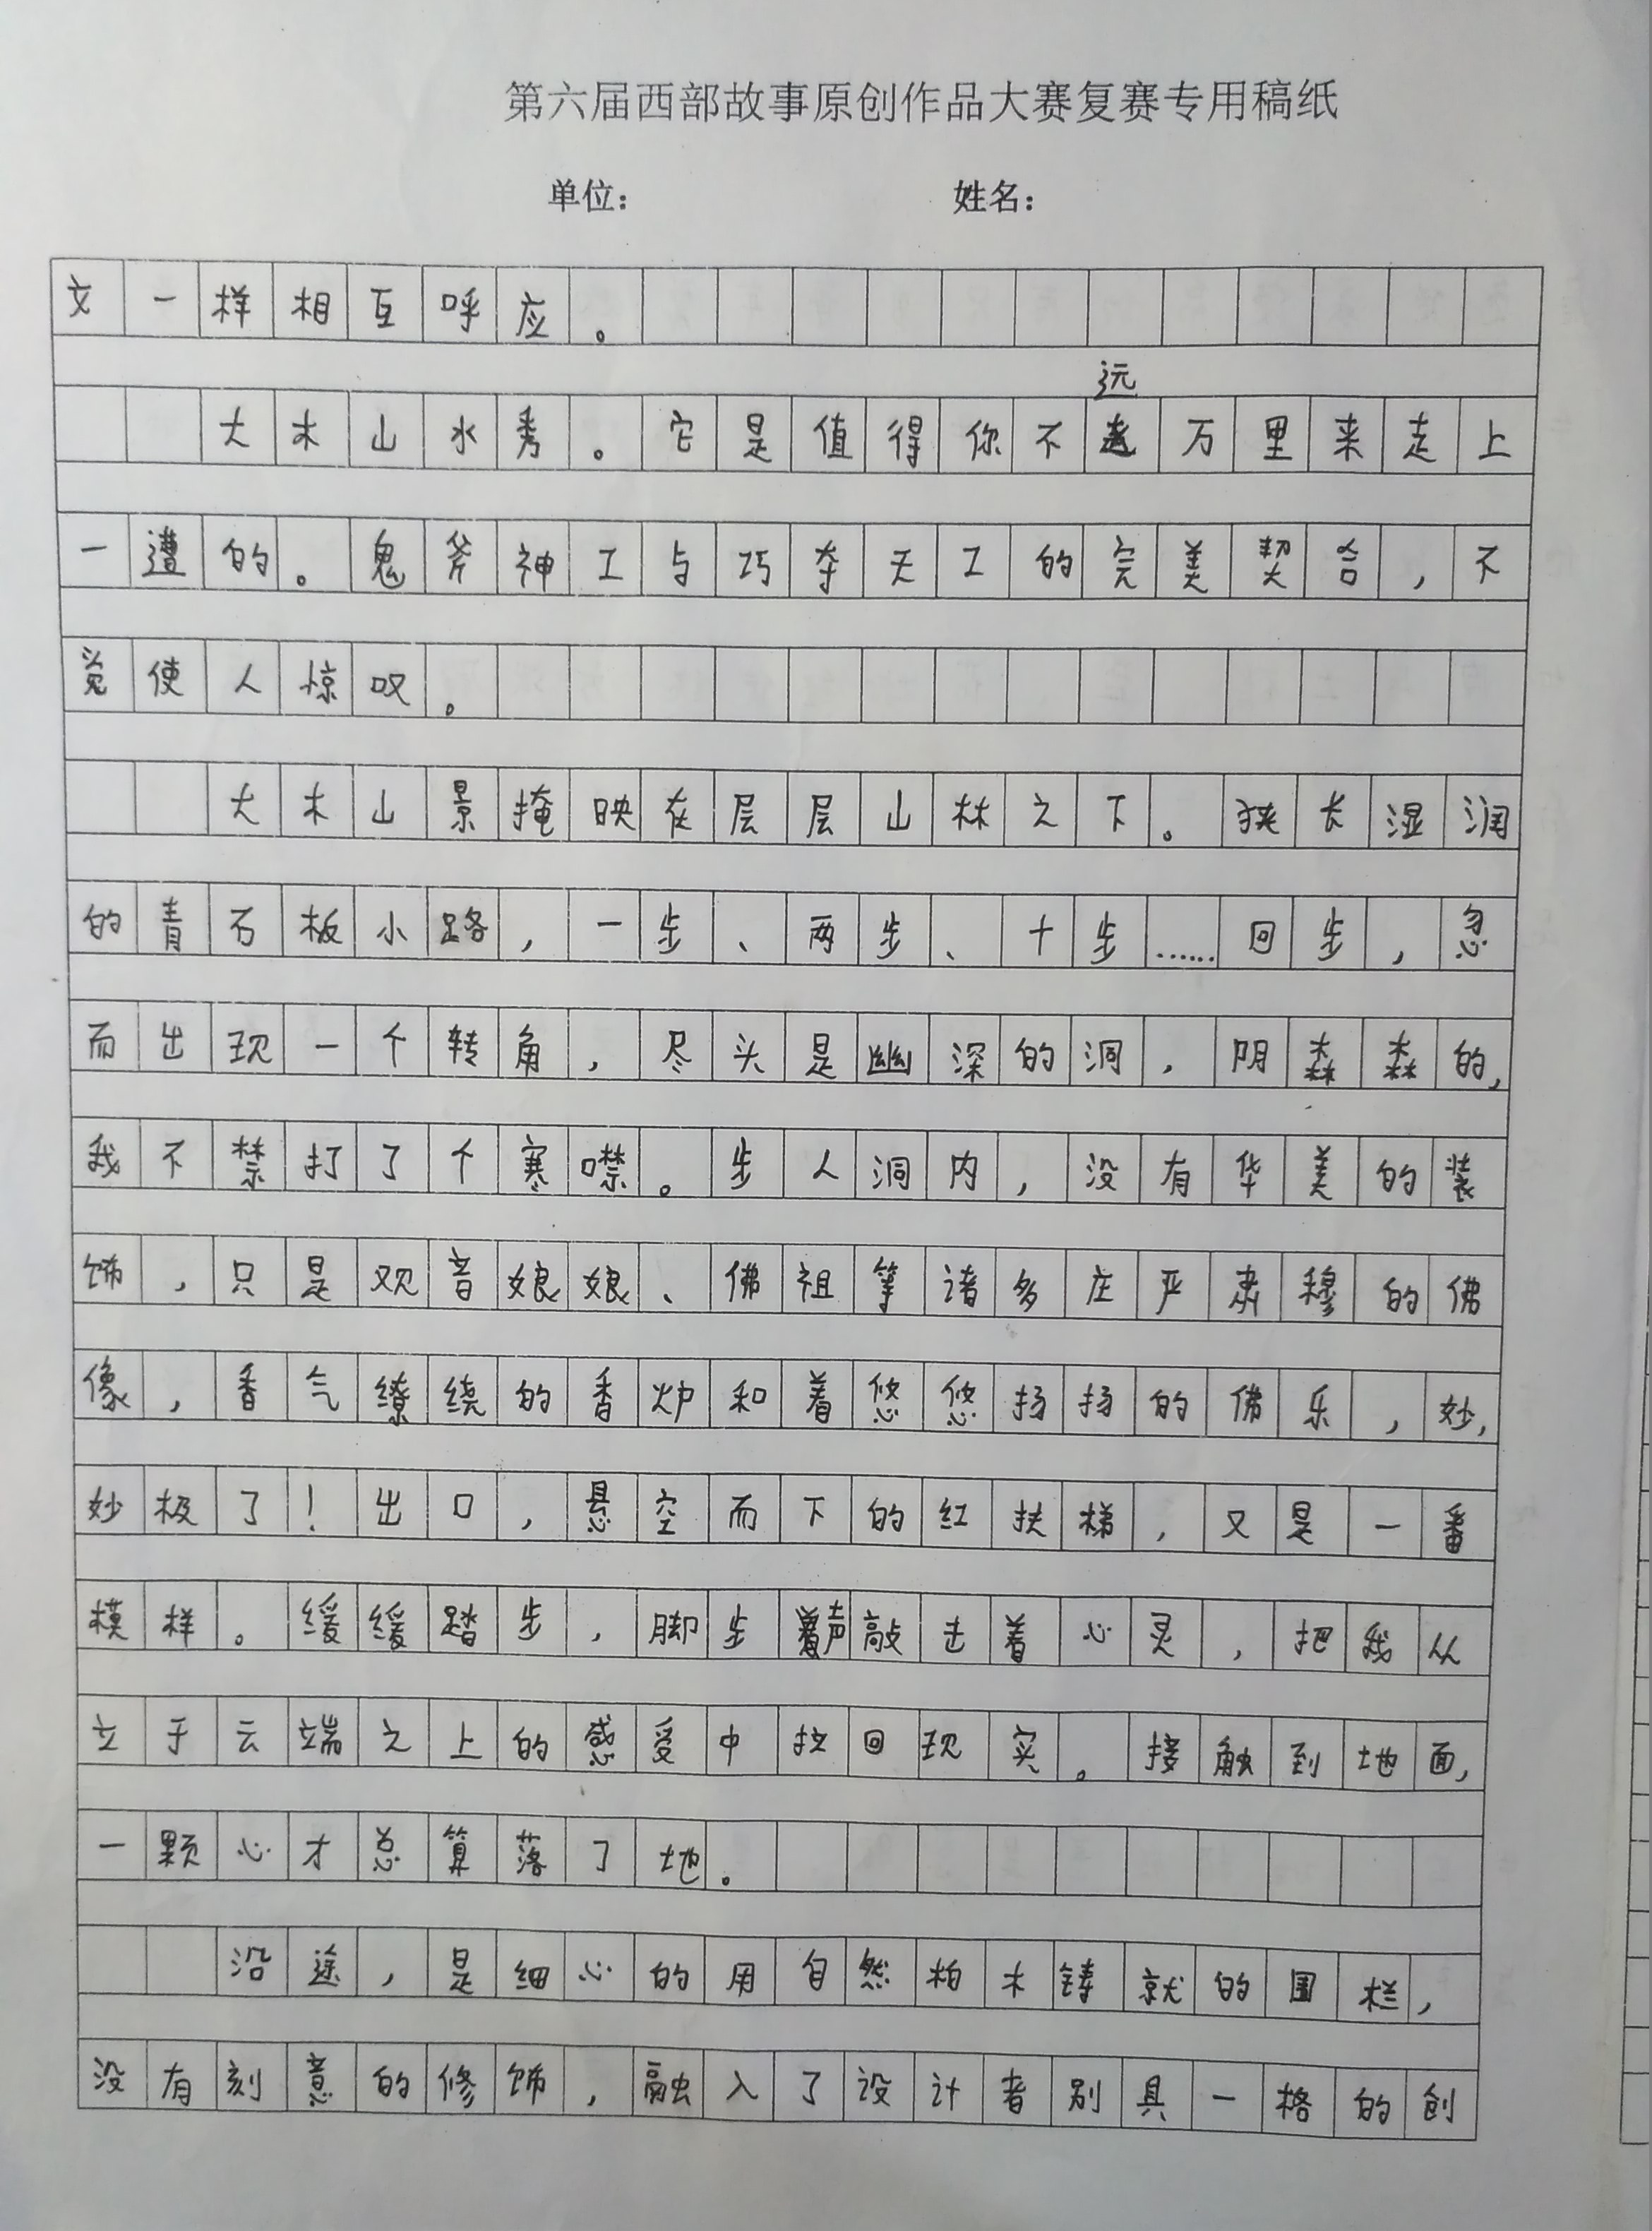 第六届西部故事原创作品大赛复赛专用稿纸
单位： 姓名：
文一样相互呼应。
大木山水秀。它是值得你不远万里来走上
一遭的。鬼斧神工与巧夺天工的完美契合，不
觉使人惊叹。
大木山景掩映在层层山林之下。狭长湿润
的青石板小路，一步、两步、十步……回步，忽
而出现一个转角，尽头是幽深的洞，阴森森的，
我不禁打了个寒噤。步人洞内，没有华美的装
饰，只是观音娘娘、佛祖等诸多庄严肃穆的佛
像，香气缭绕的香炉和着悠悠扬扬的佛乐，妙，
妙极了！出口，悬空而下的红扶梯，又是一番
模样。缓缓踏步，脚步声敲击着心灵，把我从
立于云端之上的感受中拉回现实。接触到地面，
一颗心才总算落了地。
沿途，是细心的用自然柏木铸就的围栏，
没有刻意的修饰，融入了设计者别具一格的创